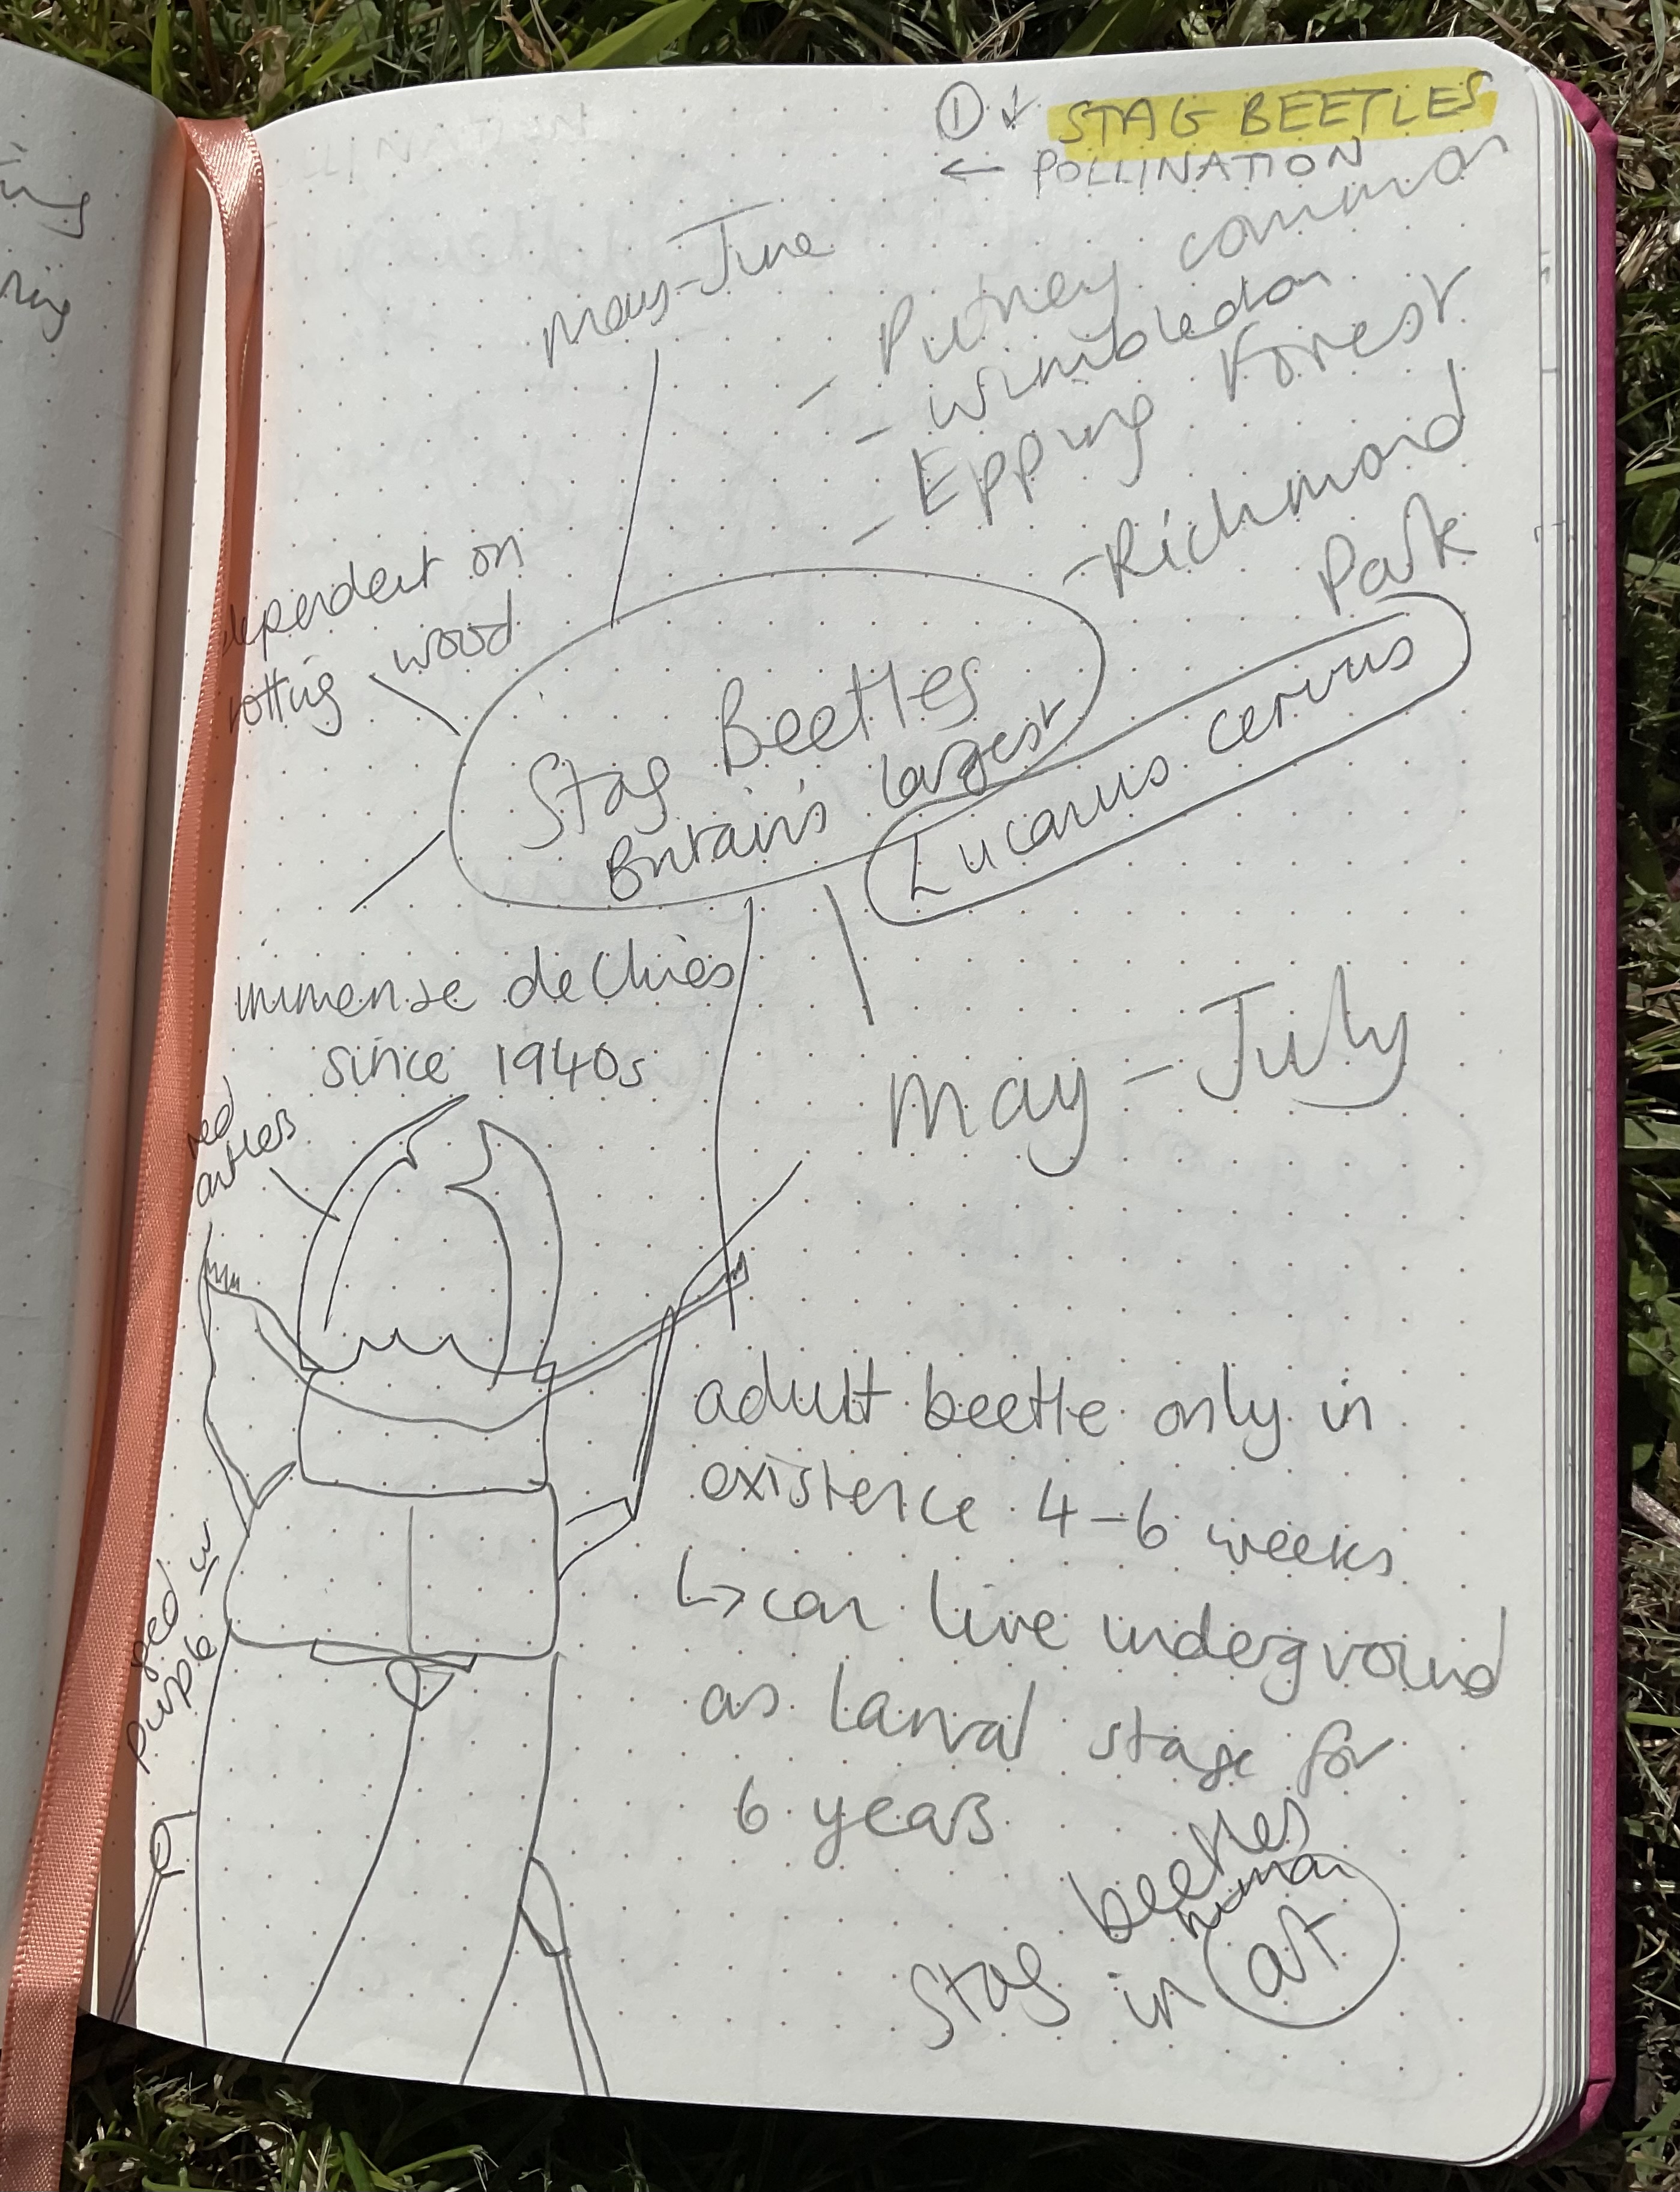 ① ↓ STAG BEETLES
← POLLINATION
May-June
- Putney common
- Wimbledon
- Epping Forest
- Richmond
Park
dependent on
rotting wood
Stag Beetles
Britain's largest
Lucanus cervus
immense declines
since 1940s
May - July
red
antlers
adult beetle only in
existence 4-6 weeks
↳ can live underground
as larval stage for
6 years
purple
Stag beetles
in human art